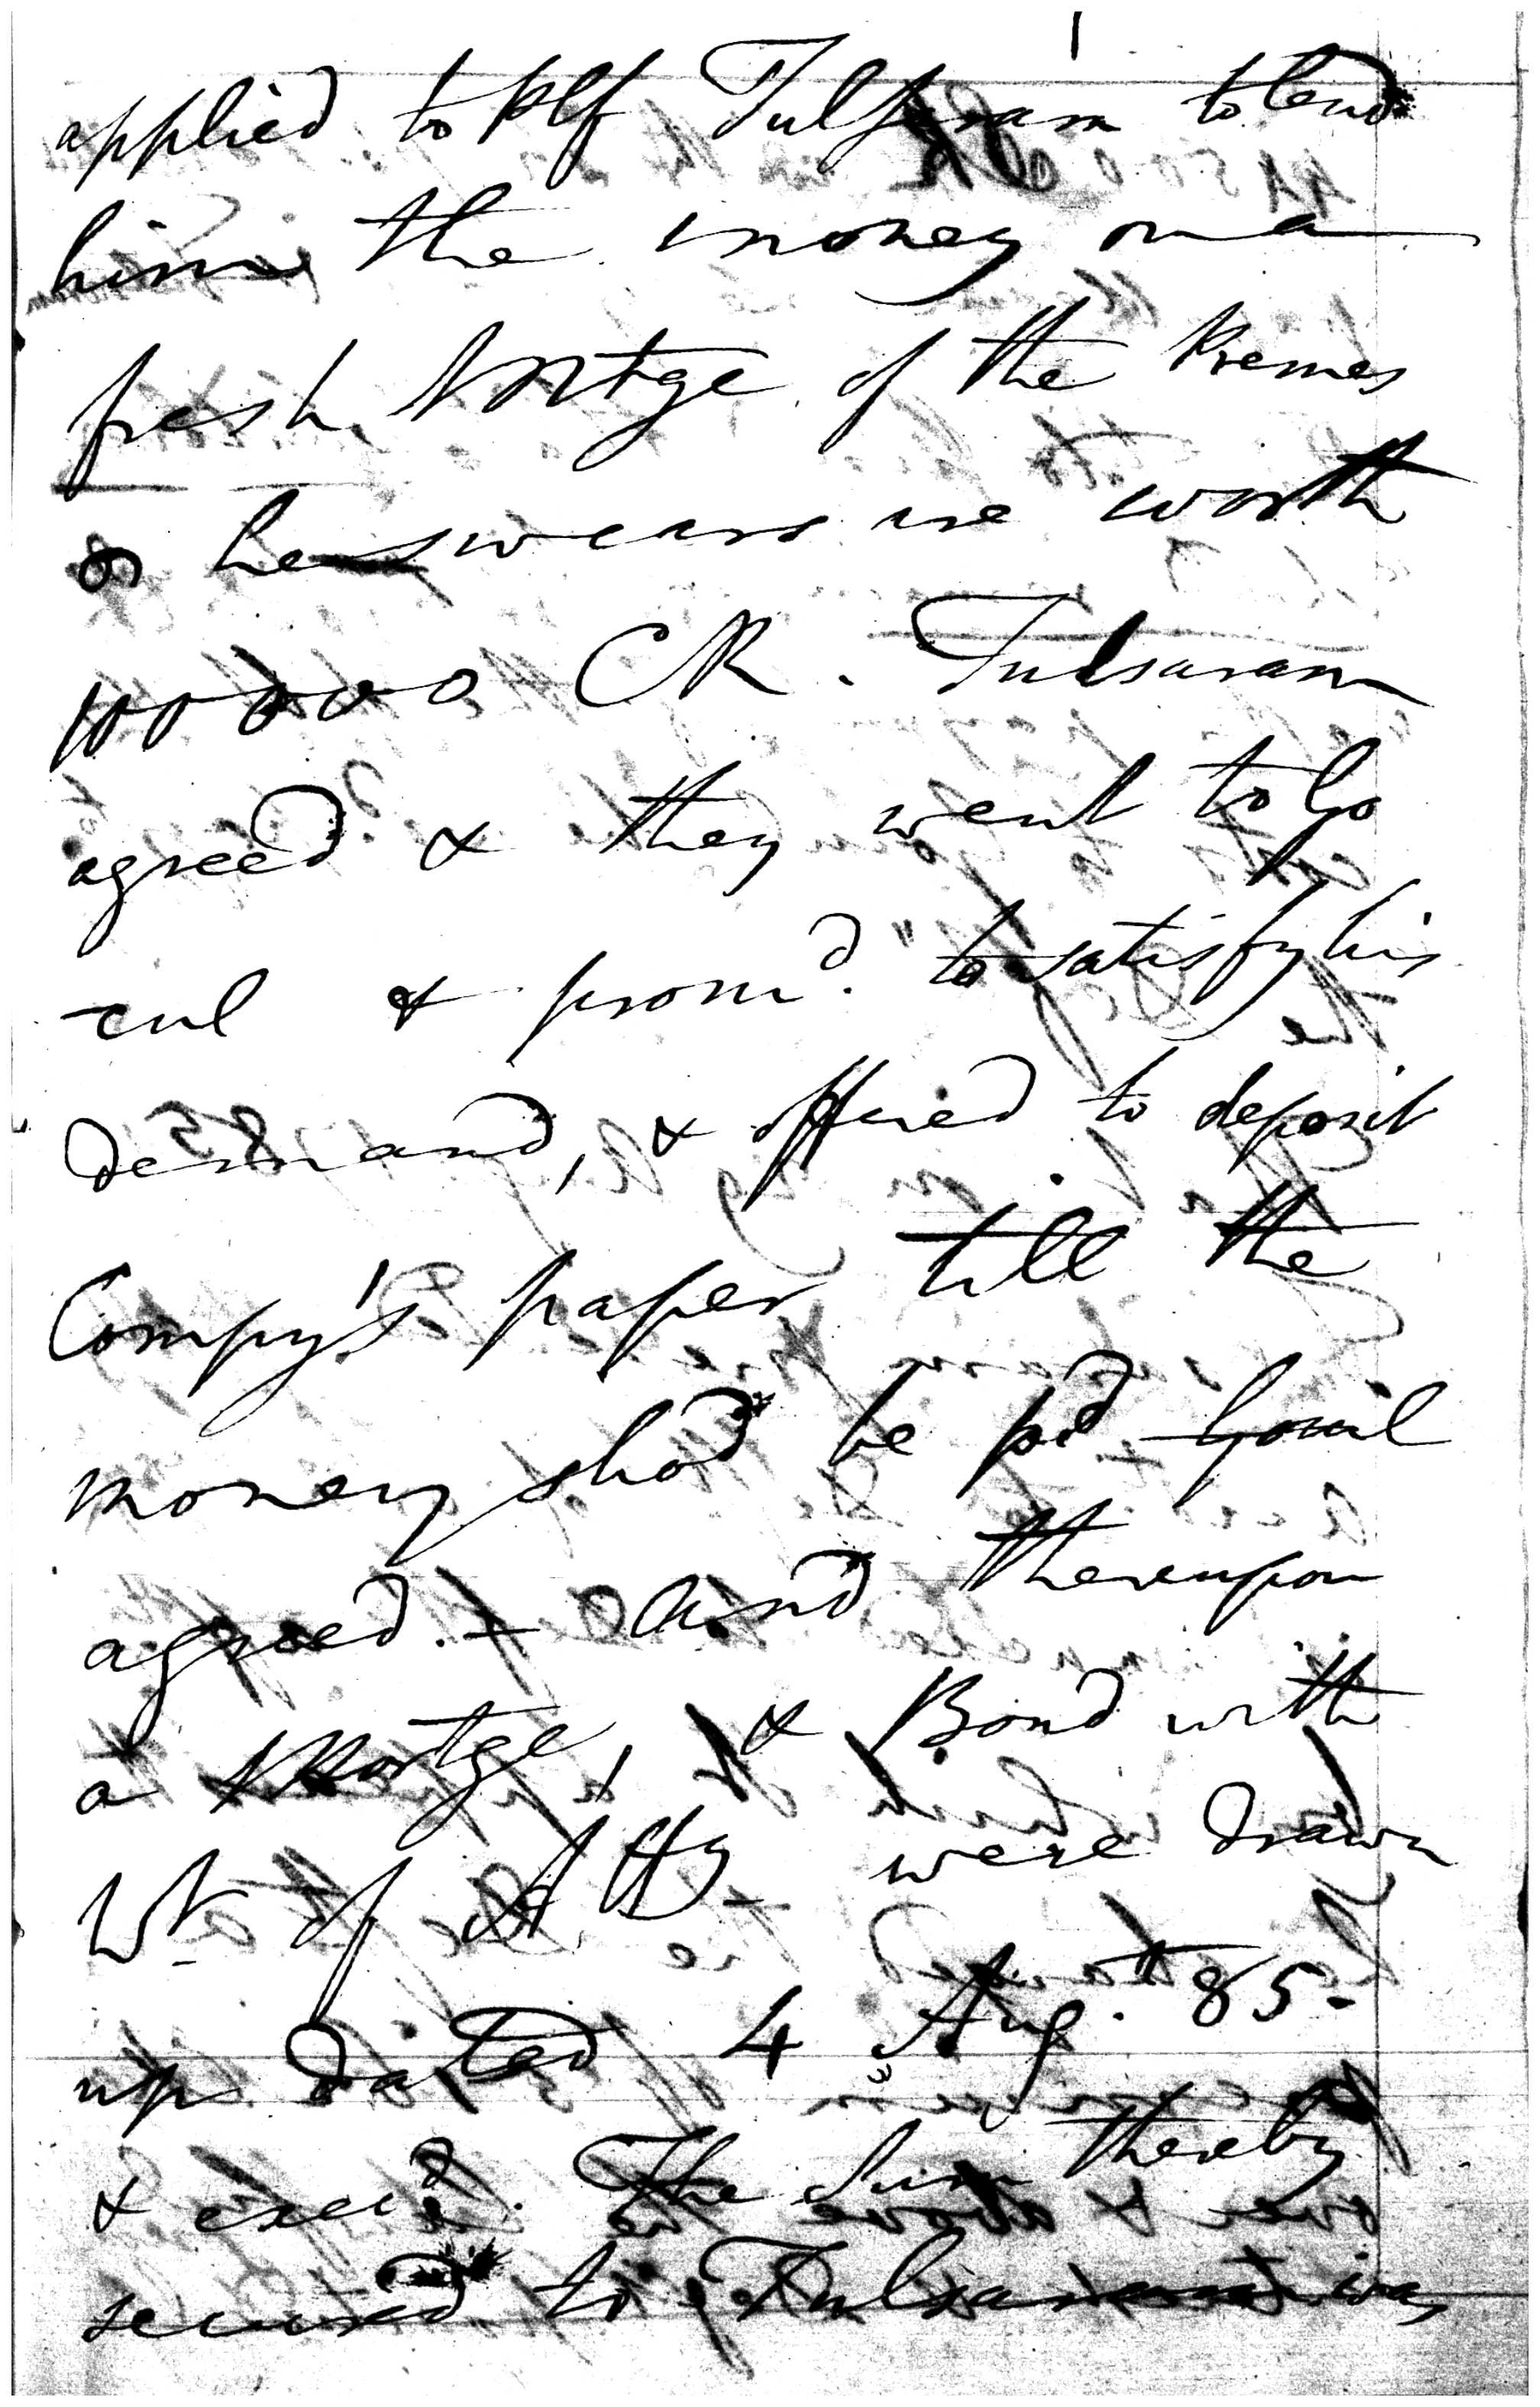 applied to Plf Tulsaram to lend
him the money on a
fresh Mortge of the Premes
he swears are worth
100000 CR. Tulsaram
agreed & they went to Go
cul & promd. to satisfy his
demand, & offered to deposit
Compy's paper till the
money shod be pd Gocul
agreed. - And thereupon
a Mortge, & Bond with
Wt of Atty were drawn
up dated 4 Aug. 85.
& execd. The Sum thereby
secured to Tulsaram was